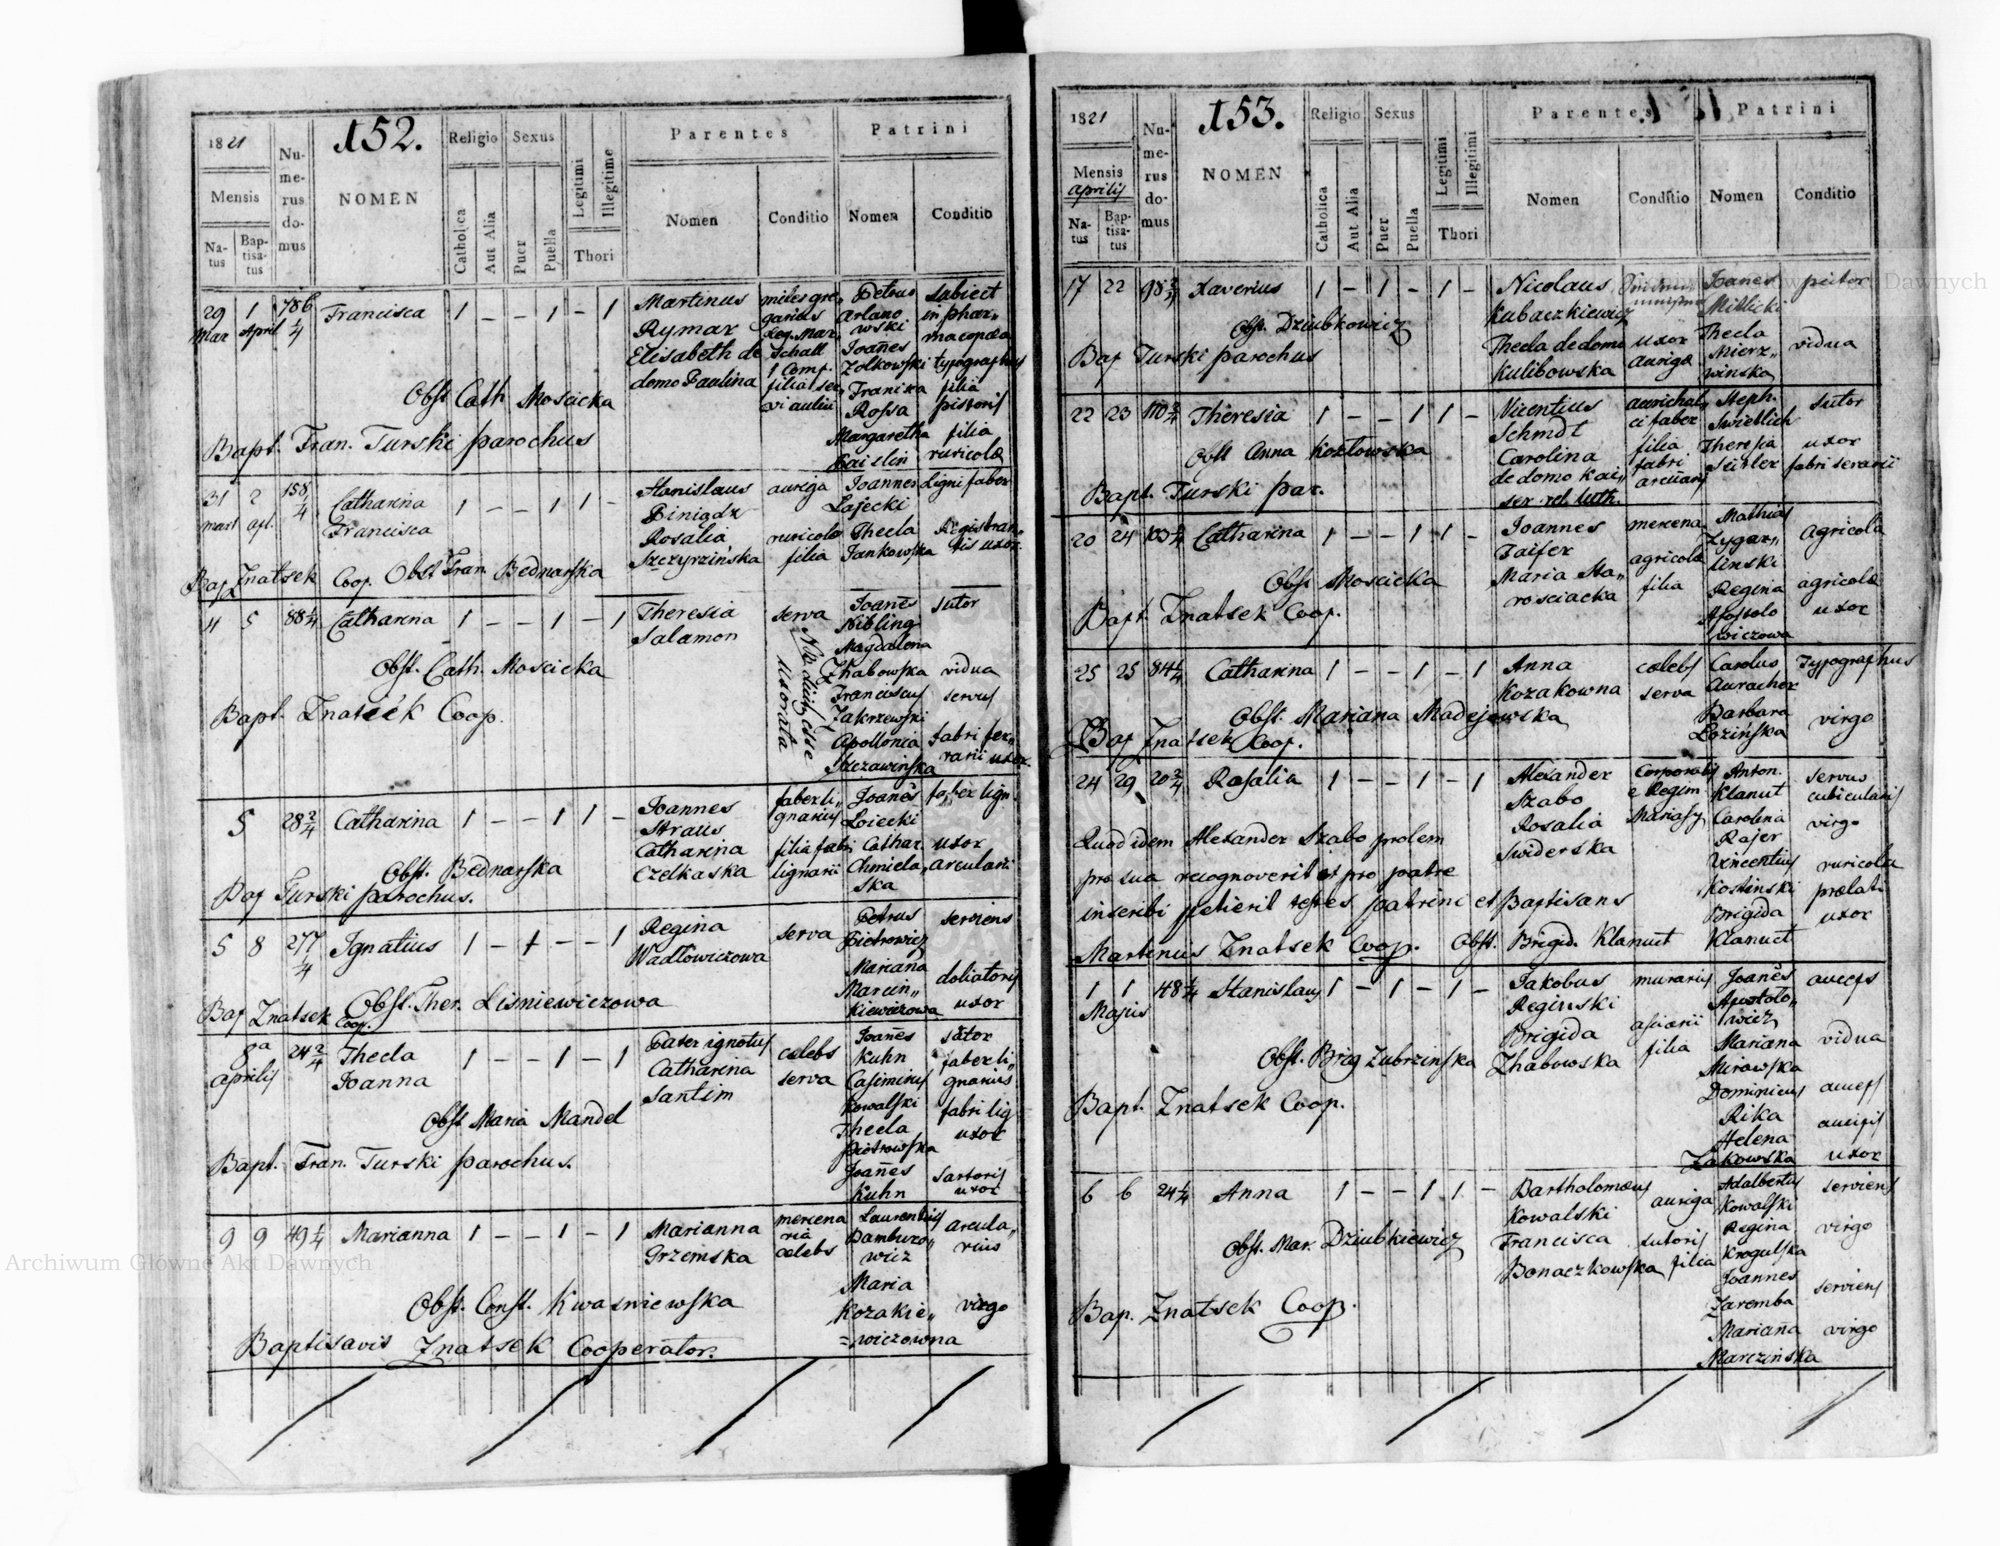 152.
1821
Mensis
Natus
Baptisatus
Numerus domus
NOMEN
Religio
Catholica
Aut Alia
Sexus
Puer
Puella
Legitimi
Illegitime
Thori
Parentes
Nomen
Conditio
Patrini
Nomen
Conditio
29 Mar 1 April 786 1/4 Francisca 1 - - 1 - 1
Martinus
Rymar
Elisabeth de
domo Paulina
miles gre„
garius
Leg. Mar„
schall
1 Comp.
filia ser„
vi aulici
Petrus
Orlano
wski
Joannes
Zolkowski
Franciska
Rossa
Margaretha
Kaislin
subiect
in phar„
macopæa
typographus
filia
pistoris
filia
ruricolæ
Obst Cath Moscicka
Bapt. Fran. Turski parochus
31 mart 2 apl. 158 1/4 Catharina Francisca 1 - - 1 1 -
Stanislaus
Biniadz
Rosalia
Szczyrzinska
auriga
ruricolæ
filia
Joannes
Lajecki
Thecla
Jankowska
Ligni faber
Registran„
tis uxor
Bap Znatsek Coop. Obst Fran. Bednarska
4 5 88 1/4 Catharina 1 - - 1 - 1
Theresia
Salamon
serva
uxorata
Joanes
Nibling
Magdalena
Zhabowska
Franciscus
Zakrzewski
Apollonia
Szczawinska
sutor
vidua
servus
fabri fer„
rarii uxor
Obst. Cath. Moscicka
Bapt. Znatsek Coop.
5 28 2/4 Catharina 1 - - 1 1 -
Joannes
Straus
Catharina
Czelkaska
faber li„
gnarius
filia fabri
lignarii
Joanes
Loiecki
Cathar.
Chmiela„
ska
faber lign.
uxor
arcularii
Obst. Bednarska
Bap Turski parochus.
5 8 277 1/4 Ignatius 1 - 1 - - 1
Regina
Wadlowiczowa
serva
Petrus
Pietrowicz
Mariana
Marcin„
kiewiczowa
serviens
doliatoris
uxor
Bap Znatsek Coop. Obst. Ther. Lisniewiczowa
8a aprilis 24 2/4 Thecla Joanna 1 - - 1 - 1
Pater ignotus
Catharina
Santim
cælebs
serva
Joanes
Kuhn
Casimirus
Kowalski
Thecla
Piotrowska
Joanes
Kuhn
sutor
faber li„
gnarius
fabri lig
uxor
sartoris
uxor
Obst Maria Mandel
Bapt. Fran. Turski parochus.
9 9 49 1/4 Marianna 1 - - 1 - 1
Marianna
Grzemska
mercena
ria
cælebs
Laurentius
Bamburo„
wicz
Maria
Kozakie„
=wiczowna
arcula„
rius
virgo
Obst. Const. Kwasniewska
Baptisavit Znatsek Cooperator.
153.
1821
Mensis
aprilis
Natus
Baptisatus
Numerus domus
NOMEN
Religio
Catholica
Aut Alia
Sexus
Puer
Puella
Legitimi
Illegitimi
Thori
Parentes
Nomen
Conditio
Patrini
Nomen
Conditio
17 22 98 3/4 Xaverius 1 - 1 - 1 -
Nicolaus
Kubaczkiewicz
Thecla de domo
Kulibowska
uxor
aurigæ
Joanes
Mitlicki
Thecla
Mierz„
winska
pictor
vidua
Obst. Dziubkowicz
Bap Turski parochus
22 23 110 2/4 Theresia 1 - - 1 1 -
Vicentius
Schmdt
Carolina
de domo Kai„
ser rel. luth.
aurichal„
ci faber
filia
fabri
Steph.
Swietlich
Theresia
sutor
uxor
fabri serarii
Obst Anna Kozlowska
Bapt. Turski par.
20 24 103 1/4 Catharina 1 - - 1 1 -
Joannes
Faifer
Maria Sta„
rosciacka
mercena
agricolæ
filia
Mathias
Zygar„
linski
Regina
Apostolo
wiczowa
agricola
agricolæ
uxor
Obst Moscicka
Bapt. Znatsek Coop.
25 25 84 1/4 Catharina 1 - - 1 - 1
Anna
Kozakowna
cælebs
serva
Carolus
Aurachor
Barbara
Lozińska
Typographus
virgo
Obst. Mariana Madejowska
Bap Znatsek Coop.
24 29 20 2/4 Rosalia 1 - - 1 - 1
Alexander
Szabo
Rosalia
Swiderska
Corporalis
e Regim
Mariasy
Anton.
Klanut
Carolina
Rajer
Vincentius
Kostinski
Brigida
Klanuct
servus
cubicularis
virgo
ruricola
prælati
uxor
Quod idem Alexander Szabo prolem
pro sua recognoverit et pro patre
inscribi petierit testes patrini et Baptisans
Martinus Znatsek Coop. Obst. Brigid. Klanuct
1 Majus 1 48 1/4 Stanislaus 1 - 1 - 1 -
Jakobus
Reginski
Brigida
Zhabowska
muraris
asciarii
filia
Joanes
Apostolo„
wicz
Mariana
Mirowska
Dominicus
Rika
Helena
Zakowska
auceps
vidua
auceps
aucipis
uxor
Obst. Brig Zubrzinska
Bapt. Znatsek Coop.
6 6 24 1/4 Anna 1 - - 1 1 -
Bartholomæus
Kowalski
Francisca
Bonaczkowska
auriga
sutoris
filia
Adalbertus
Kowalski
Regina
Krogulska
Joannes
Zaremba
Mariana
Marczinska
serviens
virgo
serviens
virgo
Obst. Mar. Dziubkiewicz
Bap. Znatsek Coop.
Archiwum Główne Akt Dawnych